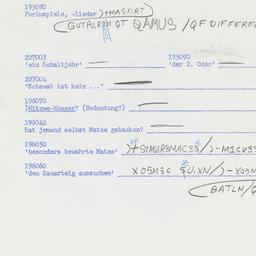 195080
Purimspiele, -lieder )+MASKIRT)
GUTPURJM QT QAMUS /QF DIFFERE
227003 193090
'ein Schaltjahr' 'der 2. Oder'
227004
"Schewat ist kein ..."
196070
)Mitzwe-Wasser? (Bedeutung?)
196040
Hat jemand selbst Matze gebacken?
196050
'besonders bewahrte Matze'
196060
'den Sauerteig aussuchen' XO5M3C
(BATLN/